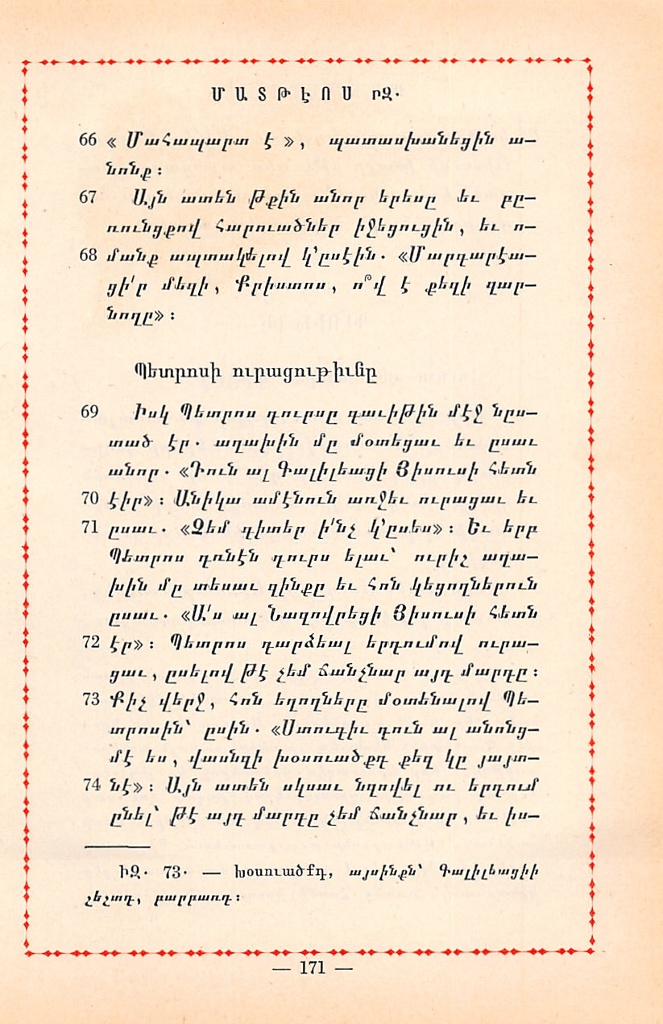 ՄԱՏԹԷՈՍ ԻԶ․
66 « Մահապարտ է », պատասխանեցին ա—
նոնք :
67 Այն ատեն թքին անոր երեսը եւ բը—
ռունցքով հարուածներ իջեցուցին, եւ ո—
68 մանք ապտակելով կ՚ըսէին․ «Մարգարէա—
ցի՛ր մեզի, Քրիստոս, ո՞վ է քեզի զար—
նողը» :
Պետրոսի ուրացութիւնը
69 Իսկ Պետրոս դուրսը գաւիթին մէջ նըս—
տած էր․ աղախին մը մօտեցաւ եւ ըսաւ
անոր․ «Դուն ալ Գալիլեացի Յիսուսի հետն
70 էիր» : Անիկա ամէնուն առջեւ ուրացաւ եւ
71 ըսաւ․ «Չեմ գիտեր ի՛նչ կ՚ըսես» : Եւ երբ
Պետրոս դռնէն դուրս ելաւ՝ ուրիշ աղա—
խին մը տեսաւ զինքը եւ հոն կեցողներուն
ըսաւ․ «Ա՛ս ալ Նազովրեցի Յիսուսի հետն
72 էր» : Պետրոս դարձեալ երդումով ուրա—
ցաւ, ըսելով թէ չեմ ճանչնար այդ մարդը :
73 Քիչ վերջ, հոն եղողները մօտենալով Պե—
տրոսին՝ ըսին․ «Ստուգիւ դուն ալ անոնց—
մէ ես, վասնզի խօսուածքդ քեզ կը յայտ—
74 նէ» : Այն ատեն սկսաւ նզովել ու երդում
ընել՝ թէ այդ մարդը չեմ ճանչնար, եւ իս—
ԻԶ․ 73․ — Խօսուածքդ, այսինքն՝ Գալիլեացիի
շեշտդ, բարբառդ :
— 171 —